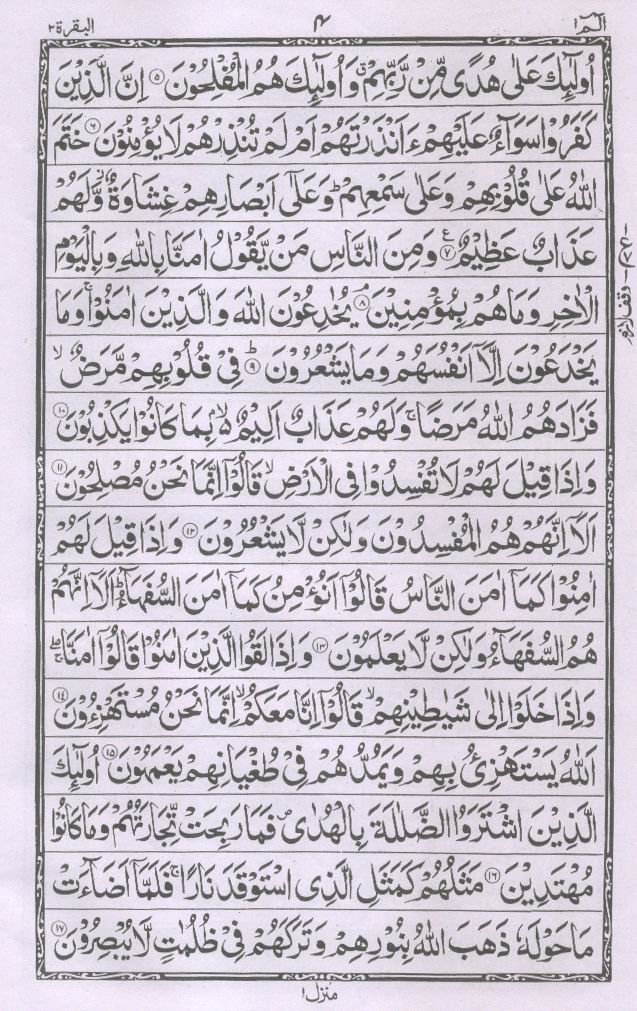 الٓمّٓ ١
۴
البقرة ٢
اُولٰٓئِكَ عَلٰى هُدًى مِّنْ رَّبِّهِمْ ۗ وَاُولٰٓئِكَ هُمُ الْمُفْلِحُوْنَ ۝۵ اِنَّ الَّذِيْنَ
كَفَرُوْا سَوَآءٌ عَلَيْهِمْ ءَاَنْذَرْتَهُمْ اَمْ لَمْ تُنْذِرْهُمْ لَا يُؤْمِنُوْنَ ۝۶ خَتَمَ
اللّٰهُ عَلٰى قُلُوْبِهِمْ وَعَلٰى سَمْعِهِمْ ؕ وَعَلٰٓى اَبْصَارِهِمْ غِشَاوَةٌ ؗ وَّلَهُمْ
عَذَابٌ عَظِيْمٌ ۝۷ ع وَمِنَ النَّاسِ مَنْ يَّقُوْلُ اٰمَنَّا بِاللّٰهِ وَبِالْيَوْمِ
الْاٰخِرِ وَمَا هُمْ بِمُؤْمِنِيْنَ ۝۸ۘ يُخٰدِعُوْنَ اللّٰهَ وَالَّذِيْنَ اٰمَنُوْا ۚ وَمَا
يَخْدَعُوْنَ اِلَّآ اَنْفُسَهُمْ وَمَا يَشْعُرُوْنَ ۝۹ؕ فِيْ قُلُوْبِهِمْ مَّرَضٌ ۙ
فَزَادَهُمُ اللّٰهُ مَرَضًا ۚ وَلَهُمْ عَذَابٌ اَلِيْمٌۢ ۙ۬ بِمَا كَانُوْا يَكْذِبُوْنَ ۝۱۰
وَاِذَا قِيْلَ لَهُمْ لَا تُفْسِدُوْا فِى الْاَرْضِ ۙ قَالُوْٓا اِنَّمَا نَحْنُ مُصْلِحُوْنَ ۝۱۱
اَلَآ اِنَّهُمْ هُمُ الْمُفْسِدُوْنَ وَلٰكِنْ لَّا يَشْعُرُوْنَ ۝۱۲ وَاِذَا قِيْلَ لَهُمْ
اٰمِنُوْا كَمَآ اٰمَنَ النَّاسُ قَالُوْٓا اَنُؤْمِنُ كَمَآ اٰمَنَ السُّفَهَآءُ ؕ اَلَآ اِنَّهُمْ
هُمُ السُّفَهَآءُ وَلٰكِنْ لَّا يَعْلَمُوْنَ ۝۱۳ وَاِذَا لَقُوا الَّذِيْنَ اٰمَنُوْا قَالُوْٓا اٰمَنَّا ۖۚ
وَاِذَا خَلَوْا اِلٰى شَيٰطِيْنِهِمْ ۙ قَالُوْٓا اِنَّا مَعَكُمْ ۙ اِنَّمَا نَحْنُ مُسْتَهْزِءُوْنَ ۝۱۴
اَللّٰهُ يَسْتَهْزِئُ بِهِمْ وَيَمُدُّهُمْ فِيْ طُغْيَانِهِمْ يَعْمَهُوْنَ ۝۱۵ اُولٰٓئِكَ
الَّذِيْنَ اشْتَرَوُا الضَّلٰلَةَ بِالْهُدٰى ۪ فَمَا رَبِحَتْ تِّجَارَتُهُمْ وَمَا كَانُوْا
مُهْتَدِيْنَ ۝۱۶ مَثَلُهُمْ كَمَثَلِ الَّذِى اسْتَوْقَدَ نَارًا ۚ فَلَمَّآ اَضَآءَتْ
مَا حَوْلَهٗ ذَهَبَ اللّٰهُ بِنُوْرِهِمْ وَتَرَكَهُمْ فِيْ ظُلُمٰتٍ لَّا يُبْصِرُوْنَ ۝۱۷
منزل ١